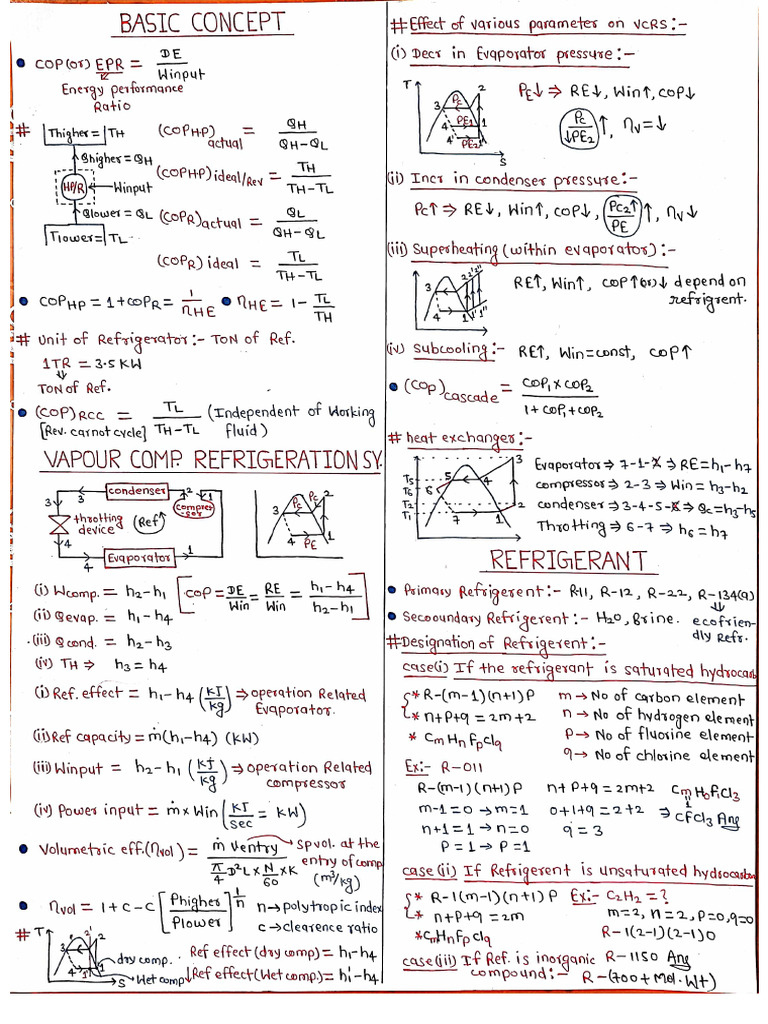 BASIC CONCEPT
• COP(or) EPR = DE / Winput
Energy performance
Ratio
# Thigher = TH
Qhigher = QH
HP/R ← Winput
Qlower = QL
Tlower = TL
(COPHP)actual = QH / QH-QL
(COPHP)ideal/Rev = TH / TH-TL
(COPR)actual = QL / QH-QL
(COPR)ideal = TL / TH-TL
• COPHP = 1+COPR = 1 / ηHE • ηHE = 1- TL / TH
# Unit of Refrigerator:- TON of Ref.
1TR = 3.5 KW
⇓
TON of Ref.
• (COP)RCC = TL / TH-TL (Independent of Working
[Rev. carnot cycle] fluid)
VAPOUR COMP. REFRIGERATION SY.
condenser
3 3 2 1
compressor
throtting
device
Ref↑
4 4 1
Evaporator
3 Pc Pc 2
4 PE 1
(i) Wcomp. = h2-h1 [COP = DE / Win = RE / Win = h1-h4 / h2-h1]
(ii) Qevap. = h1-h4
(iii) Qcond. = h2-h3
(iv) TH ⇒ h3 = h4
(i) Ref. effect = h1-h4 (KJ/kg) ⇒ operation Related
Evaporator.
(ii) Ref capacity = ṁ(h1-h4) (KW)
(iii) Winput = h2-h1 (KJ/kg) ⇒ operation Related
compressor
(iv) Power input = ṁ x Win (KJ/sec = KW)
• Volumetric eff.(ηvol) = ṁ ventry / π/4 D²L x N/60 x K → sp vol. at the
entry of comp
(m³/kg)
• ηvol = 1+C-C [Phigher / Plower]^1/n n → polytropic index
c → clearence ratio
# T 3 2' 2 4 1' 1 S
dry comp. Ref effect (dry comp) = h1-h4
Wet comp Ref effect (Wet comp.) = h1'-h4
# Effect of various parameter on VCRS:-
(i) Decr in Evaporator pressure:-
T 2 3 Pc 4 PE1 1 4' PE2 S
PE↓ ⇒ RE↓, Win↑, COP↓
Pc / ↓PE2 ↑, ηv = ↓
(ii) Incr in condenser pressure:-
Pc↑ ⇒ RE↓, Win↑, COP↓, Pc2↑ / PE ↑, ηv↓
(iii) Superheating (within evaporator):-
2 2' 2" 3 4 1 1' 1"
RE↑, Win↑, COP↑(or)↓ depend on
refrigrent.
(iv) Subcooling:- RE↑, Win=const, COP↑
• (COP)cascade = COP1 x COP2 / 1+COP1+COP2
# heat exchanger:-
T5 T6 T2 T1
3 5 4 6 2 7 1
Evaporator ⇒ 7-1-X ⇒ RE=h1-h7
compressor ⇒ 2-3 ⇒ Win = h3-h2
condenser ⇒ 3-4-5-X ⇒ qc=h3-h5
Throtting ⇒ 6-7 ⇒ h6 = h7
REFRIGERANT
• Primary Refrigerent:- R11, R-12, R-22, R-134(a)
⇓
• Secoundary Refrigerent:- H2O, Brine. ecofrien-
dly Refr.
# Designation of Refrigerent:-
case(i) If the refrigerant is saturated hydrocarb
* R-(m-1)(n+1)P m → No of carbon element
* n+P+q = 2m+2 n → No of hydrogen element
* CmHnFpClq P → No of fluorine element
q → No of chlorine element
Ex:- R-011
R-(m-1)(n+1)P n+P+q = 2m+2 CmH0F1Cl3
m-1=0 → m=1 0+1+q = 2+2 ⇒ 1
n+1=1 → n=0 q = 3 CFCl3 Ans
P=1 → P=1
case(ii) If Refrigerent is unsaturated hydrocarbon
* R-1(m-1)(n+1)P Ex:- C2H2 = ?
* n+P+q = 2m m=2, n=2, P=0, q=0
* CmHnFpClq R-1(2-1)(2-1)0
case(iii) If Ref. is inorganic R-1150 Ans
compound:- R-(700+Mol. Wt)